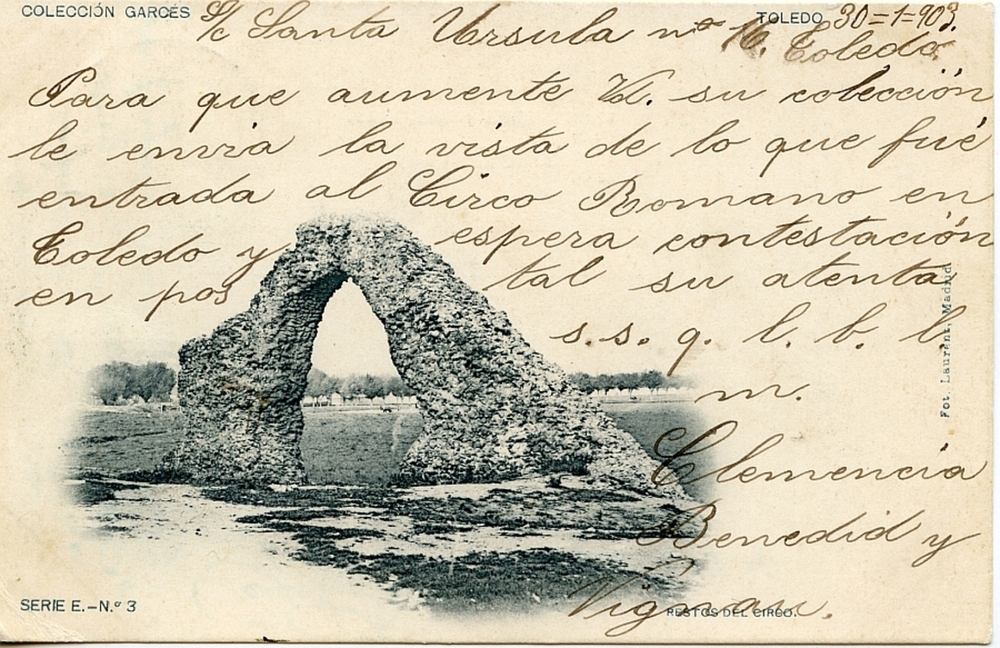 COLECCIÓN GARCÉS
TOLEDO 30=1=903.
S/c Santa Ursula nº 16. Toledo.
Para que aumente Vd. su colección
le envia la vista de lo que fué
entrada al Circo Romano en
Toledo y espera contestación
en pos tal su atenta
s.s. q. l. b. l.
m.
Clemencia
Benedid y
Vignau.
Fot. Laurent, Madrid
SERIE E.-N.º 3
RESTOS DEL CIRCO.